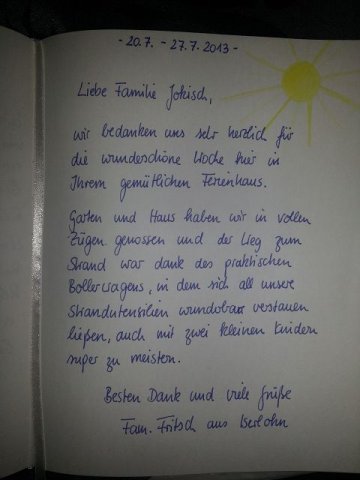 - 20.7. - 27.7.2013 -
Liebe Familie Jokisch,
wir bedanken uns sehr herzlich für
die wunderschöne Woche hier in
Ihrem gemütlichen Ferienhaus.
Garten und Haus haben wir in vollen
Zügen genossen und der Weg zum
Strand war dank des praktischen
Bollerwagens, in dem sich all unsere
Strandutensilien wunderbar verstauen
ließen, auch mit zwei kleinen Kindern
super zu meistern.
Besten Dank und viele Grüße
Fam. Fritsch aus Iserlohn